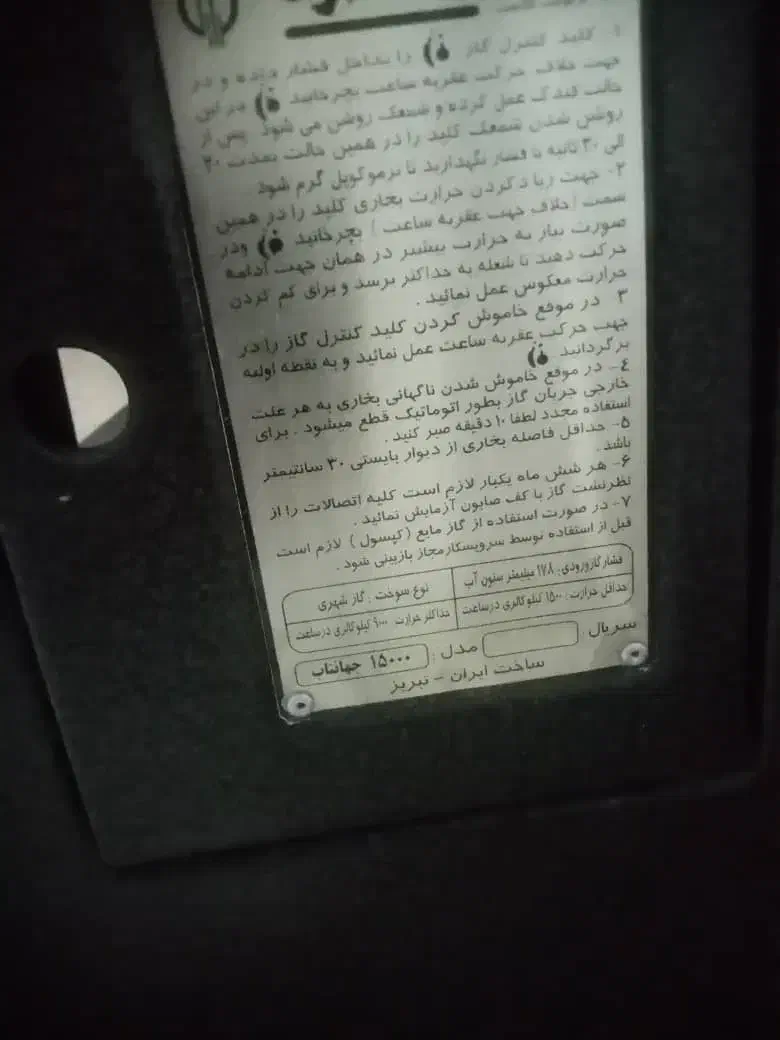 ۱- کلید کنترل گاز را بداخل فشار داده و در
جهت خلاف حرکت عقربه ساعت بچرخانید در این
حالت فندک عمل کرده و شمعک روشن می شود پس از
روشن شدن شمعک کلید را در همین حالت بمدت ۲۰
الی ۳۰ ثانیه با فشار نگهدارید تا ترموکوپل گرم شود
۲- جهت زیاد کردن حرارت بخاری کلید را در همین
سمت (خلاف جهت عقربه ساعت) بچرخانید ودر
صورت نیاز به حرارت بیشتر در همان جهت ادامه
حرکت دهید تا شعله به حداکثر برسد و برای کم کردن
حرارت معکوس عمل نمائید .
۳ در موقع خاموش کردن کلید کنترل گاز را در
جهت حرکت عقربه ساعت عمل نمائید و به نقطه اولیه
برگردانید
٤- در موقع خاموش شدن ناگهانی بخاری به هر علت
خارجی جریان گاز بطور اتوماتیک قطع میشود . برای
استفاده مجدد لطفا ۱۰ دقیقه صبر کنید .
۵- حداقل فاصله بخاری از دیوار بایستی ۳۰ سانتیمتر
باشد .
۶- هر شش ماه یکبار لازم است کلیه اتصالات را از
نظرنشت گاز با کف صابون آزمایش نمائید .
۷- در صورت استفاده از گاز مایع (کپسول) لازم است
قبل از استفاده توسط سرویسکارمجاز بازبینی شود .
فشارگازورودی : ۱۷۸ میلیمتر ستون آب نوع سوخت : گاز شهری
حداقل حرارت : ۱۵۰۰ کیلوکالری درساعت حداکثر حرارت ۹۰۰۰ کیلوکالری درساعت
سریال : مدل : ۱۵۰۰۰ جهانتاب
ساخت ایران - تبریز